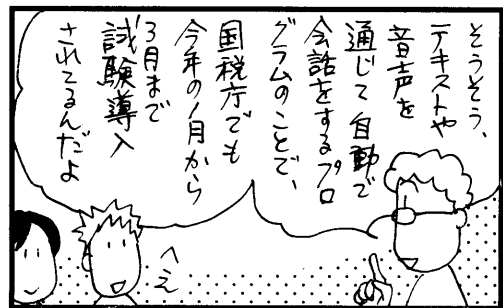 そうそう、
テキストや
音声を
通じて自動で
会話をするプロ
グラムのことで、
国税庁でも
今年の1月から
3月まで
試験導入
されてるんだよ
へえ